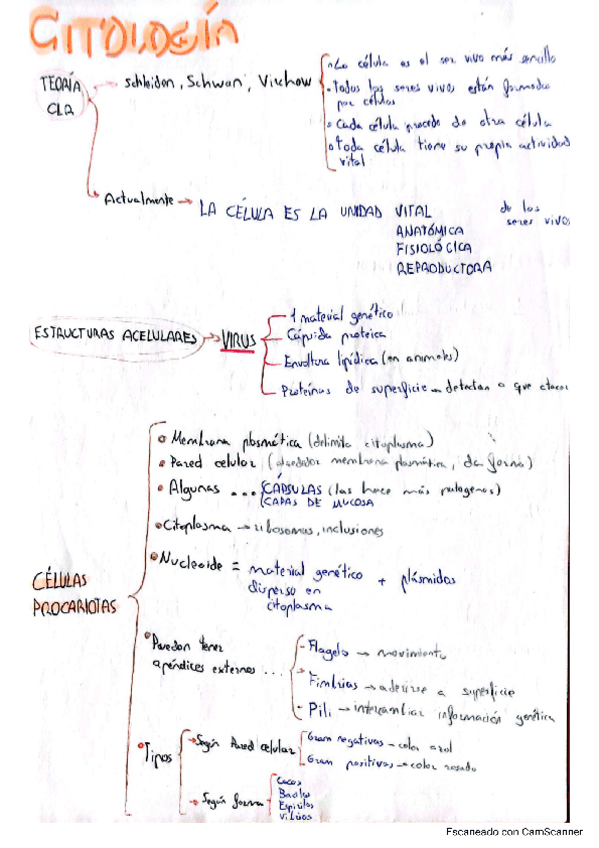 CITOLOGÍA
TEORÍA
CLR
Schleiden, Schwan, Virchow
La célula es el ser vivo más sencillo
Todos los seres vivos están formados
por células
Cada célula procede de otra célula
toda célula tiene su propia actividad
vital
Actualmente → LA CÉLULA ES LA UNIDAD VITAL
ANATÓMICA
FISIOLÓGICA
REPRODUCTORA
de los
seres vivos
ESTRUCTURAS ACELULARES → VIRUS
1 material genético
Cápsida proteica
Envoltura lipídica (en animales)
Proteínas de superficie → detectan a que atacar
CÉLULAS
PROCARIOTAS
Membrana plasmática (delimita citoplasma)
Pared celular (alrededor membrana plasmática, da forma)
Algunas ... CÁPSULAS (las hace más patogenas)
CAPAS DE MUCOSA
Citoplasma → ribosomas, inclusiones
Nucleoide = material genético + plásmidos
disperso en
citoplasma
Pueden tener
apéndices externos ...
- Flagelo → movimiento
Fimbrias → aderirse a superficie
- Pili → intercambiar información genética
Tipos
→ Según Pared celular
Gram negativas → color azul
Gram positivas → color rosado
→ Según forma
Cocos
Bacilos
Espirilos
Vibrios
Escaneado con CamScanner